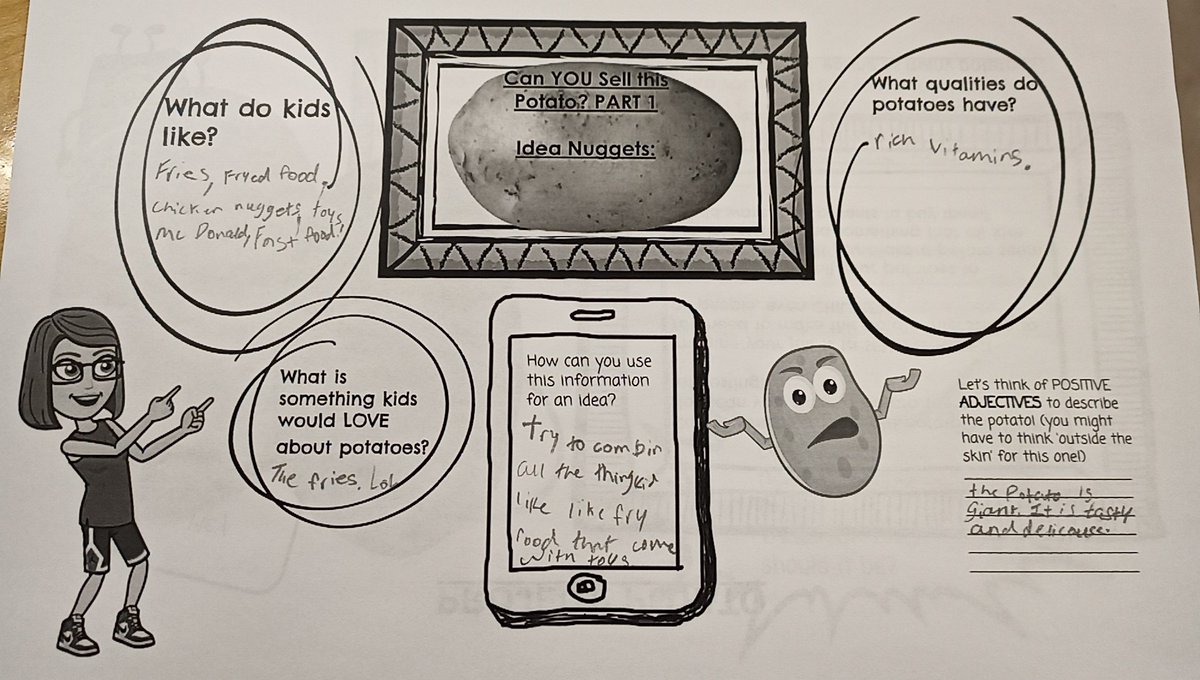 Can YOU Sell this
Potato? PART 1
Idea Nuggets:
What do kids
like?
Fries, Fryed food,
chicken nuggets, toys,
Mc Donald, Fast food!
What qualities do
potatoes have?
rich vitamins.
What is
something kids
would LOVE
about potatoes?
The fries. Lol
How can you use
this information
for an idea?
Try to combin
all the thing kid
like like fry
food that come
with toys
Let's think of POSITIVE
ADJECTIVES to describe
the potato! (you might
have to think 'outside the
skin' for this one!)
the Potato is
Giant. It is tasty
and delicouse.